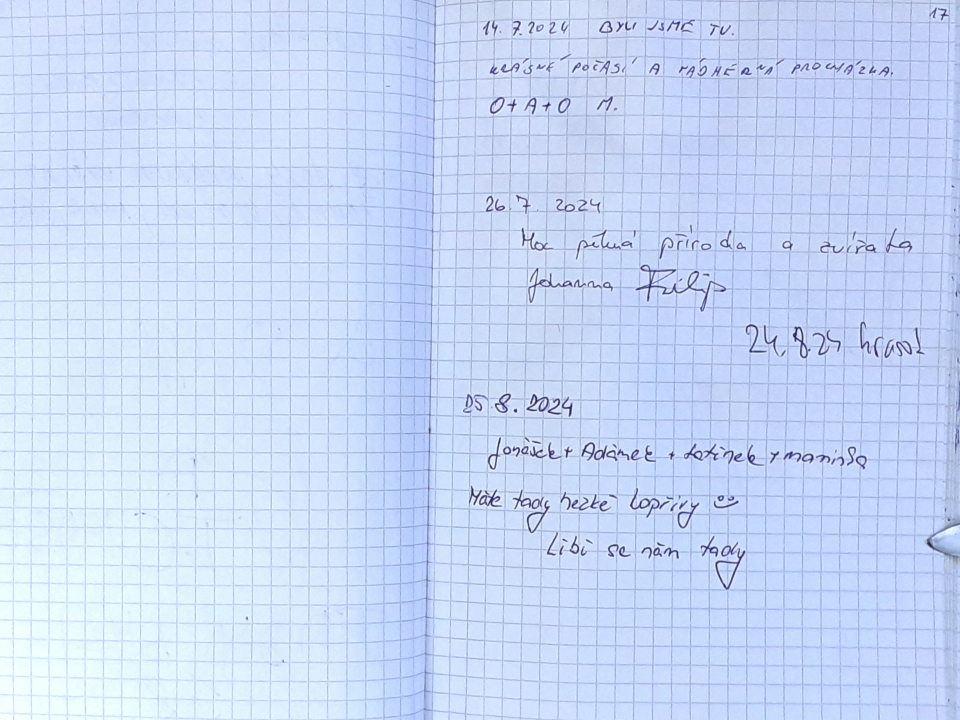 17
14.7.2024 BYLI JSME TU.
KRÁSNÉ POČASÍ A NÁDHERNÁ PROCHÁZKA.
O+A+O M.
26.7. 2024
Moc pěkná příroda a zvířata
Johanna Filip
24.8.24
25.8.2024
Jonášek + Adámek + tatínek + maminka
Máte tady hezké
Líbí se nám tady